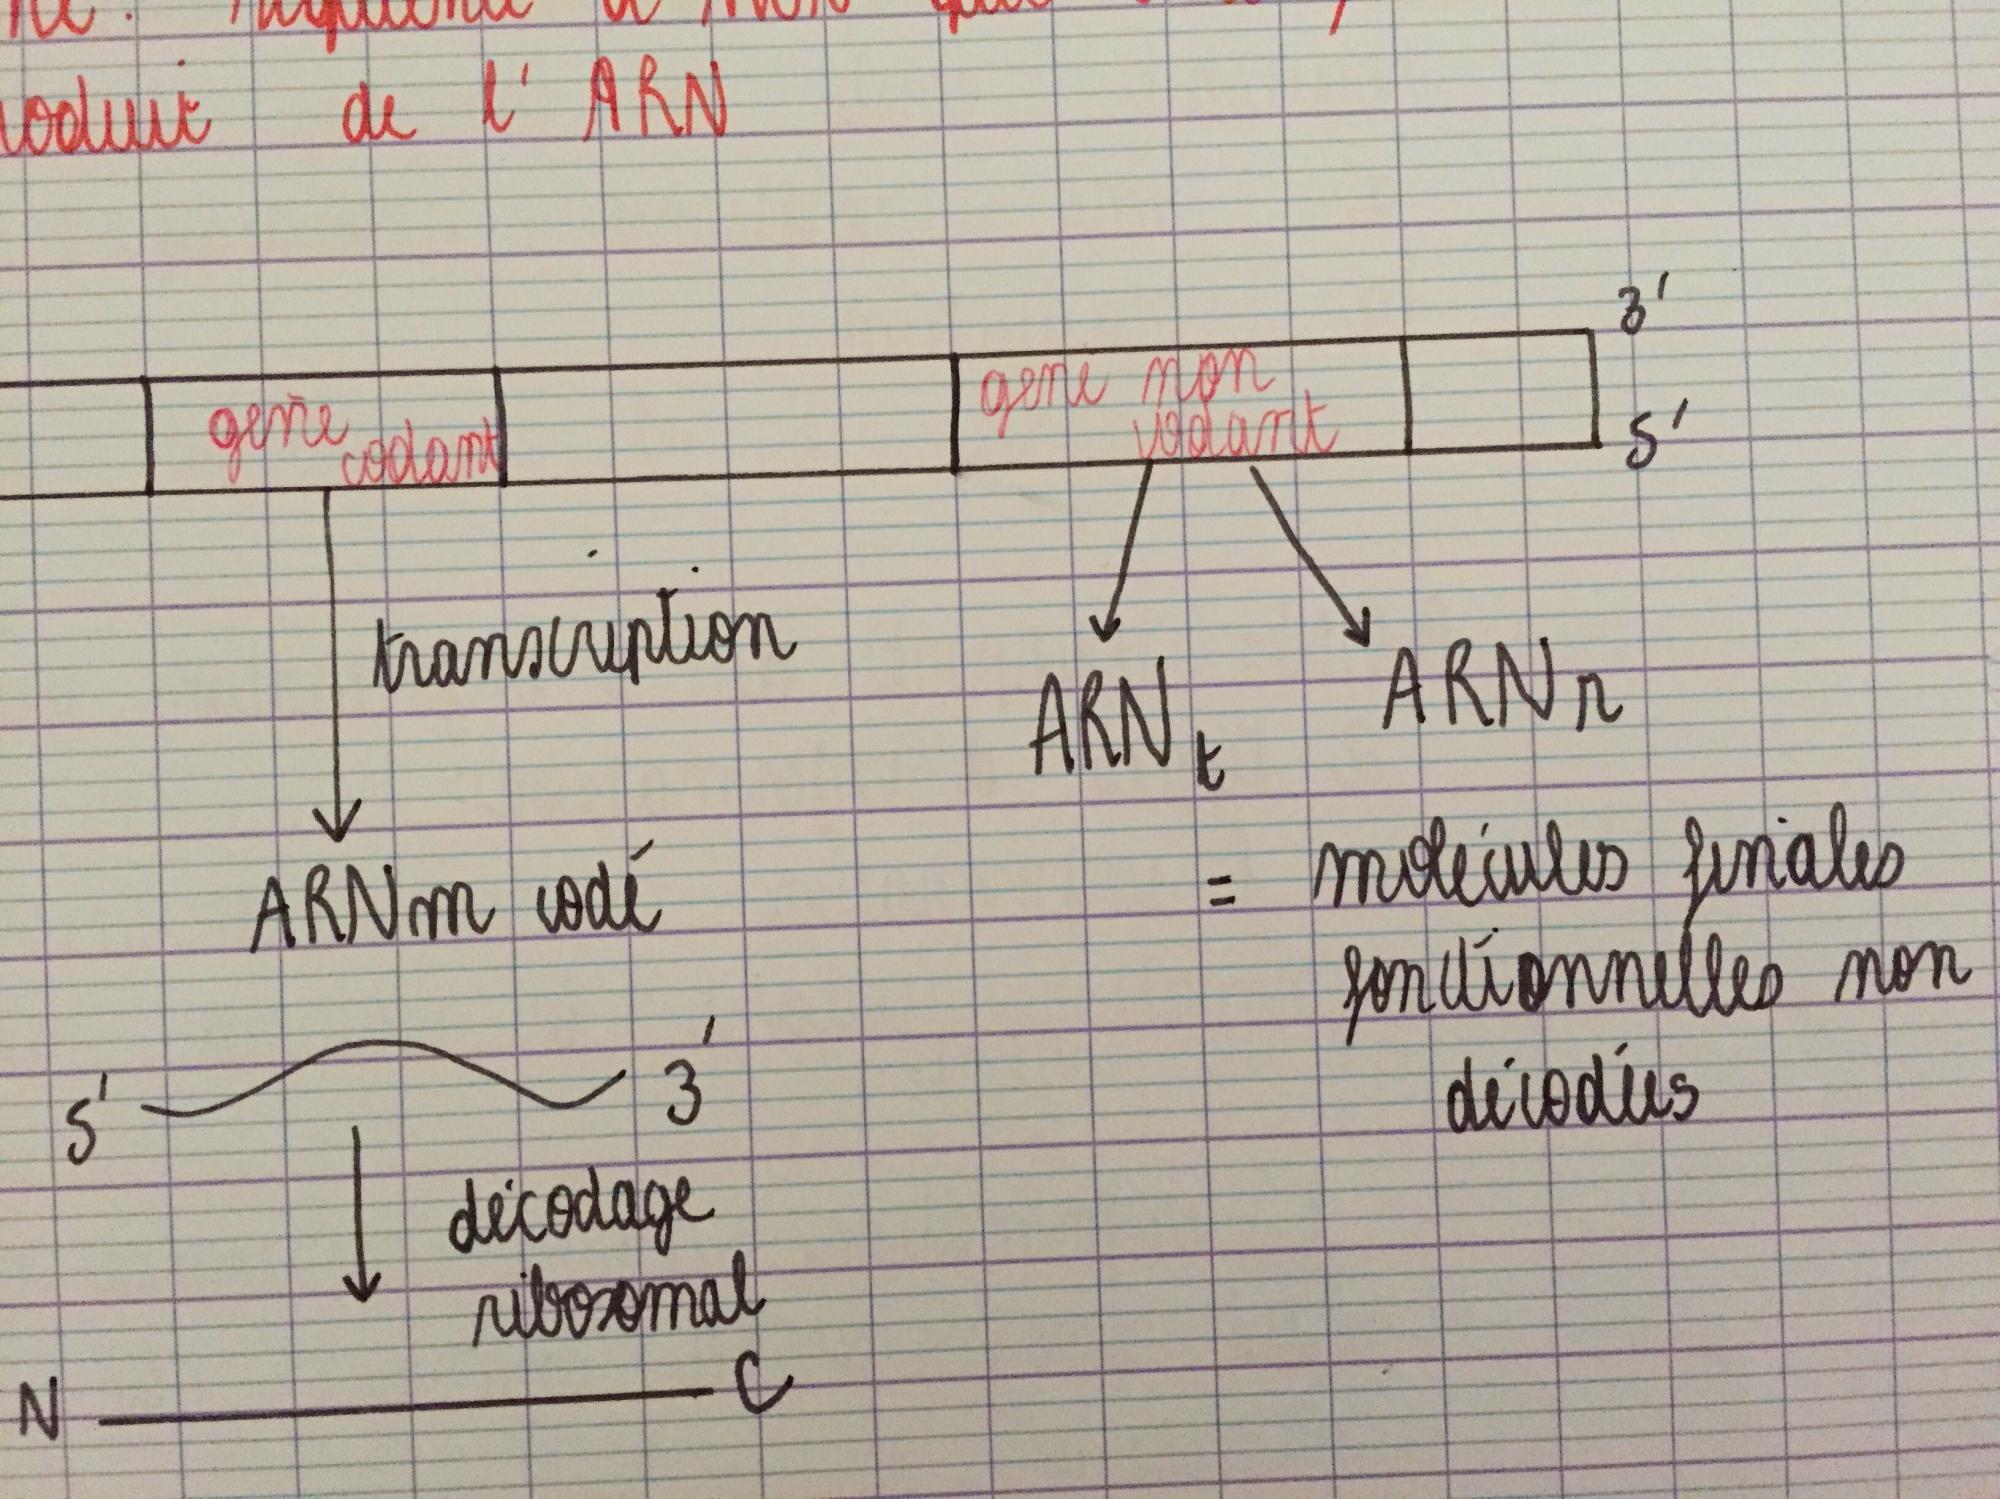 de l'ARN
3'
gène codant
gène non
codant
5'
transcription
ARNt
ARNr
ARNm codé
= molécules finales
fonctionnelles non
décodées
5' 3'
décodage
ribosomal
N C